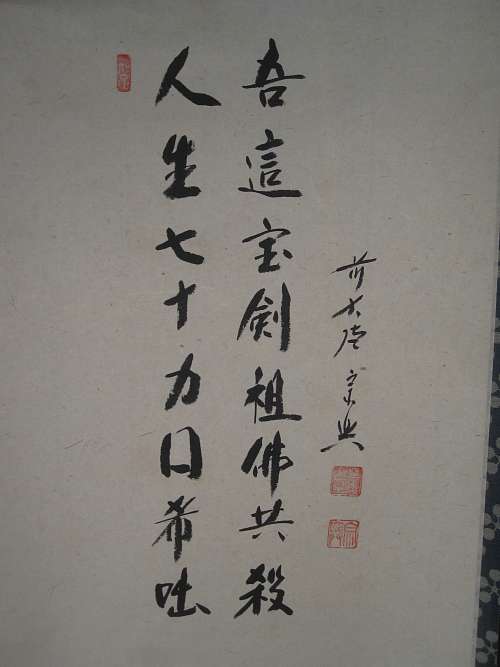 人生七十力囗希咄
吾這宝剣祖佛共殺
前大徳宗興